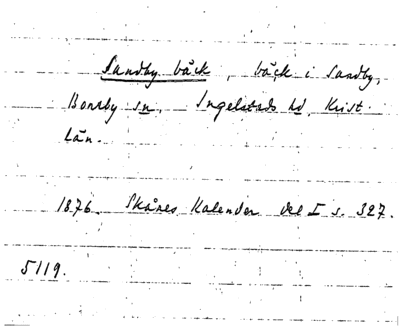 Sandby bäck, bäck i Sandby,
Borrby sn, Ingelstads hd, Krist.
län.
1876. Skånes Kalender del I s. 327.
5119.